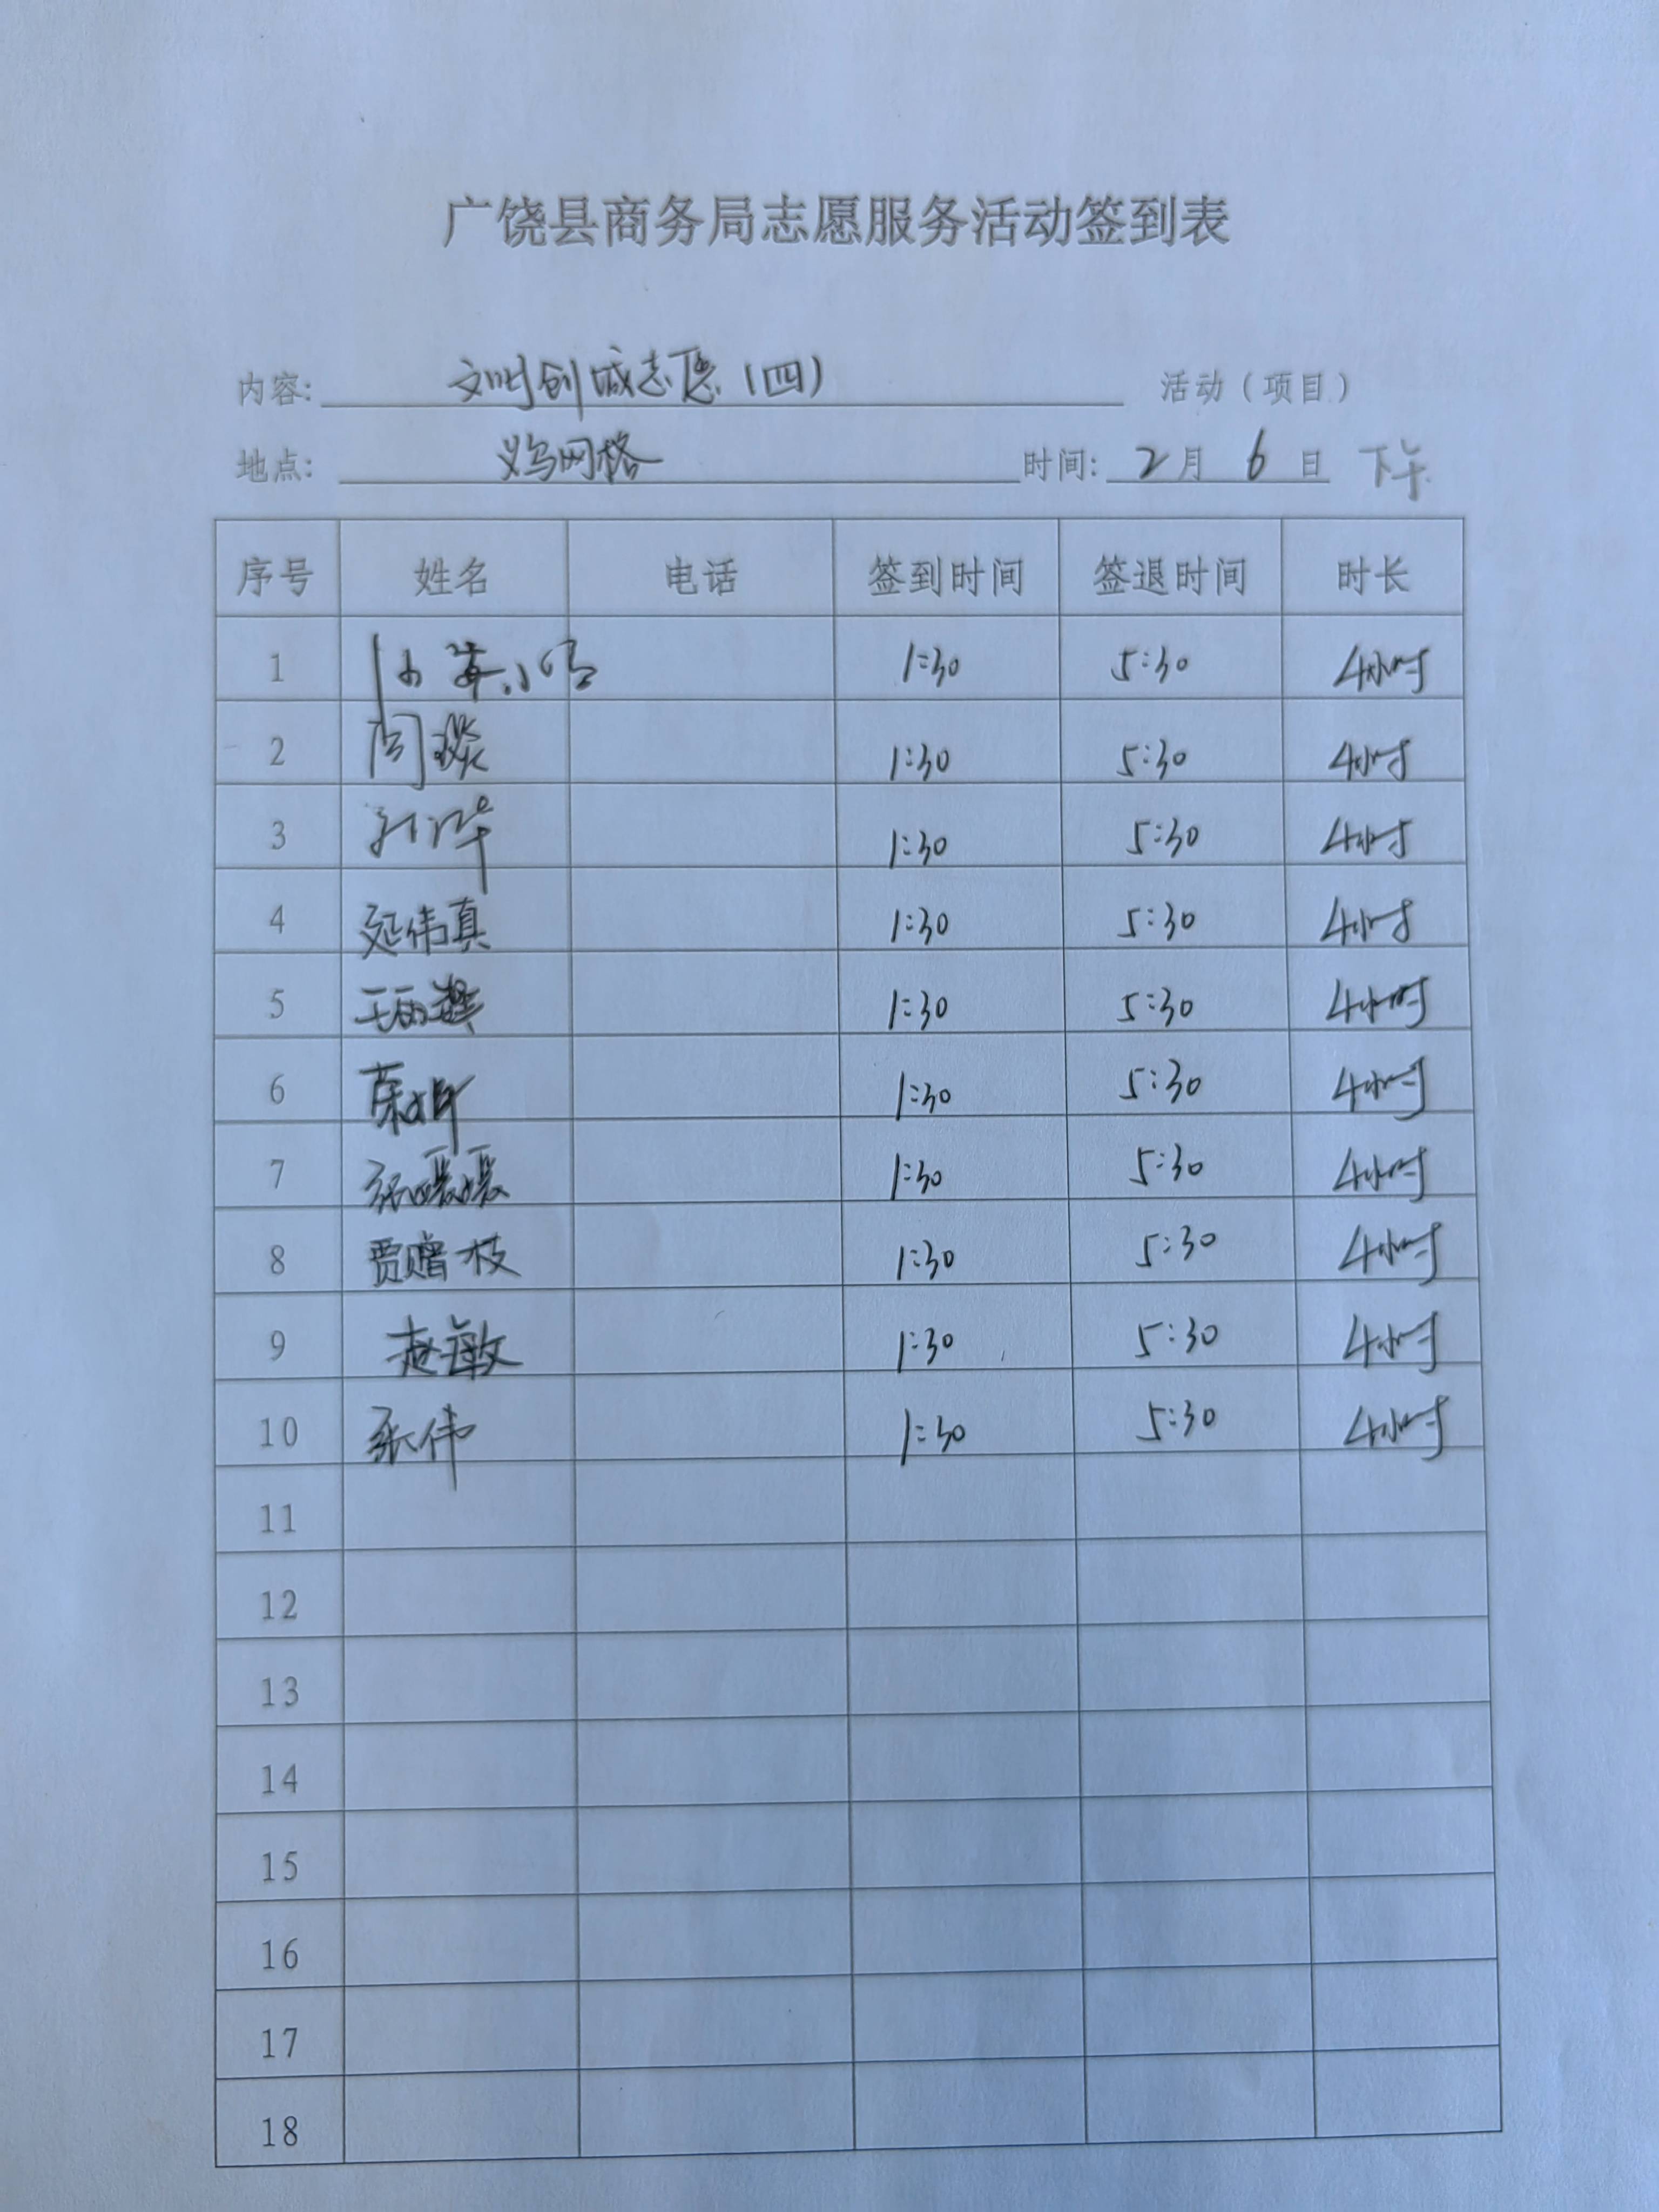 广饶县商务局志愿服务活动签到表
内容: 文明创城志愿（四） 活动（项目）
地点: 义乌网格 时间: 2月6日 下午
序号 姓名 电话 签到时间 签退时间 时长
1 1:30 5:30 4小时
2 闫琰 1:30 5:30 4小时
3 1:30 5:30 4小时
4 延伟真 1:30 5:30 4小时
5 1:30 5:30 4小时
6 1:30 5:30 4小时
7 张媛媛 1:30 5:30 4小时
8 贾赠枝 1:30 5:30 4小时
9 赵敏 1:30 5:30 4小时
10 张伟 1:30 5:30 4小时
11
12
13
14
15
16
17
18